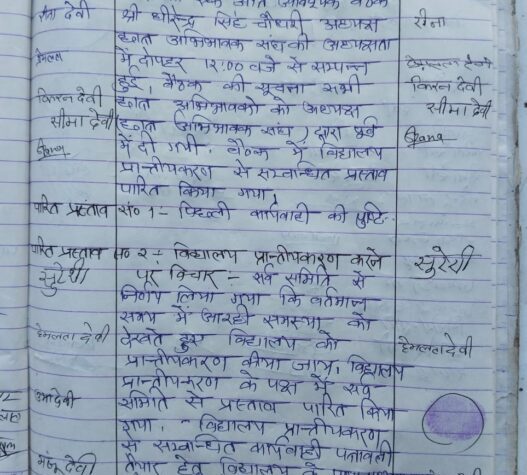 एक अति आवश्यक बैठक
उमा देवी श्री धीरेन्द्र सिंह चौधरी अध्यक्ष रीना
छात्र अभिभावक संघ की अध्यक्षता
में दोपहर 12:00 बजे से सम्पन्न
हुई, बैठक की सूचना सभी
किरन देवी छात्र अभिभावको को अध्यक्ष किरन देवी
सीमा देवी (छात्र अभिभावक संघ) द्वारा पूर्व सीमा देवी
में दी गयी, बैठक में विद्यालय
प्रान्तीयकरण से सम्बन्धित प्रस्ताव
पारित किया गया,
पारित प्रस्ताव सं० 1- पिछली कार्यवाही की पुष्टि-
पारित प्रस्ताव सं० 2- विद्यालय प्रान्तीयकरण करने सुरेशी
सुरेशी पर विचार - सर्व समिति से
निर्णय लिया गया कि वर्तमान
समय में आरही समस्या को
हेमलता देवी देखते हुए विद्यालय का हेमलता देवी
प्रान्तीयकरण किया जाय, विद्यालय
प्रान्तीयकरण के पक्ष में सर्व
उमा देवी समिति से प्रस्ताव पारित किया
गया, - विद्यालय प्रान्तीयकरण
से सम्बन्धित कार्यवाही पत्रावली
मंजू देवी तैयार हेतु विद्यालय